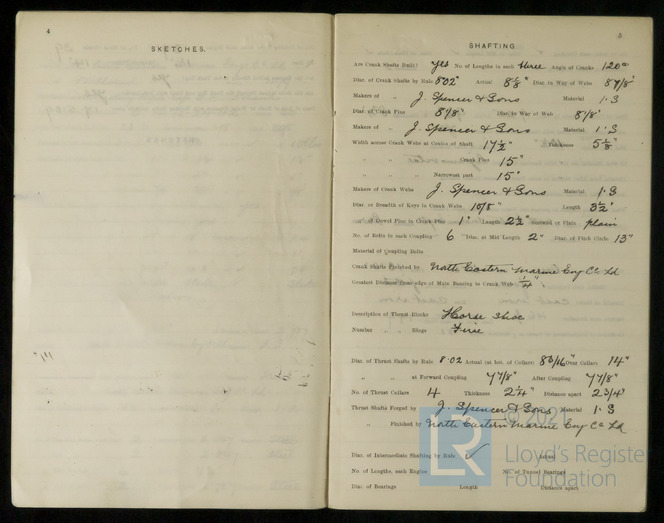 4
SKETCHES.
5
SHAFTING
Are Crank Shafts Built? yes No. of Lengths in each three Angle of Cranks 120°
Diar. of Crank Shafts by Rule 8.02" Actual 8⅛" Diar. in Way of Webs 8⅞"
Makers of " J. Spencer & Sons Material I.S
Diar. of Crank Pins 8⅛" Diar. in Way of Web 8⅛"
Makers of " J. Spencer & Sons Material I.S
Width across Crank Webs at Centre of Shaft 17½" Thickness 5⅛"
" " Crank Pins 15"
" " Narrowest part 15"
Makers of Crank Webs J. Spencer & Sons Material I.S
Diar. or Breadth of Keys in Crank Webs Length 3½"
" of Dowel Pins in Crank Pins 1" Length 2½" Screwed or Plain plain
No. of Bolts in each Coupling 6 Diar. at Mid Length 2" Diar. of Pitch Circle 13"
Material of Coupling Bolts
Crank Shafts Finished by North Eastern Marine Eng Co Ld
Greatest Distance from edge of Main Bearing to Crank Web ¼"
Description of Thrust Blocks Horse Shoe
Number " " Rings Five
Diar. of Thrust Shafts by Rule 8.02 Actual (at bot. of Collars) Over Collars 14"
" " at Forward Coupling 7⅞" After Coupling 7⅞"
No. of Thrust Collars 4 Thickness 2¼" Distance apart 2¾"
Thrust Shafts Forged by J. Spencer & Sons Material I.S
" Finished by North Eastern Marine Eng Co Ld
Diar. of Intermediate Shafting by Rule ✓ Actual
No. of Lengths, each Engine No. of Tunnel Bearings
Diar. of Bearings Length Distance apart
© 2021
LR
Lloyd's Register
Foundation